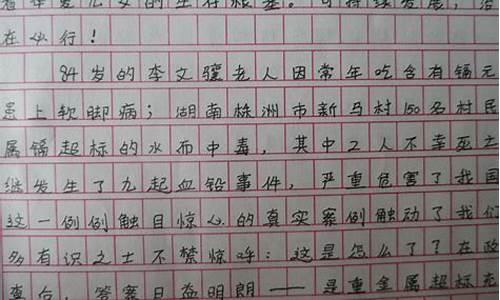 着华夏儿女的生存根基。可持续发展,治
在必行!
84岁的李文骧老人因常年吃含有镉元
患上软脚病;湖南株洲市新马村150名村民
属镉超标的水而中毒,其中2人不幸死亡
继发生了九起血铅事件,严重危害了我国
这一例例触目惊心的真实案例触动了我们
多有识之士不禁惊呼:这是怎么了?在政
查台,答案日益明朗——是重金属超标充